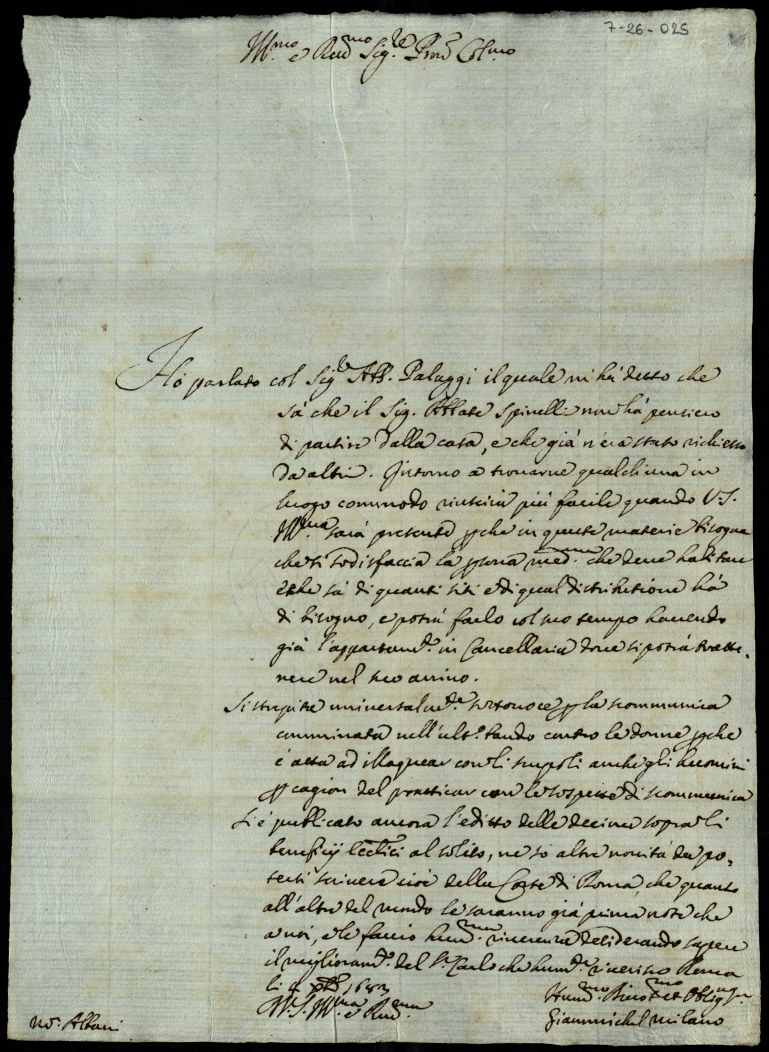 7-26-025
Ill.mo e Rev.mo Sig.re Pron Col.mo
Ho parlato col Sig.re Abb. Palaggi il quale mi há detto che
sá che il Sig. Abbate Spinelli non há pensiero
di partire dalla casa, e che giá n'era stato richiesto
da altri. Intorno a trovarne qualch'una in
luogo commodo riuscirà piú facile quando V.S.
Ill.ma sará presente pche in queste materie bisogna
che si sodisfaccia la psona med.ma che deve habitare
e che sá di quanti siti e di qual distributione há
di bisogno, e potrá farlo col suo tempo havendo
giá l'appartam.to in Cancellaria dove si potrá tratte-
nere nel suo arrivo.
Si stupisce universalm.te sottovoce p la scommunica
comminata nell'ult.o bando contro le donne pche
é atta ad illaquear con li scrupoli anche gli huomini
p cagion del practicar con le sospette di scommunica
Si é publicato ancora l'editto delle decime sopra li
beneficij al solito, ne só altre novitá da po-
terli scrivere cioé della Corte di Roma, che quanto
all'altre del mondo le saranno giá prima note che
a noi, e le faccio hum.ma riverenza desiderando sapere
il miglioram.to del S.r Carlo che hum.te riverisco Roma
li 4
V.S. Ill.ma e Rev.ma
Hum.mo Dev.mo et Oblig.mo
Giannmichel Milano
M.r Albani